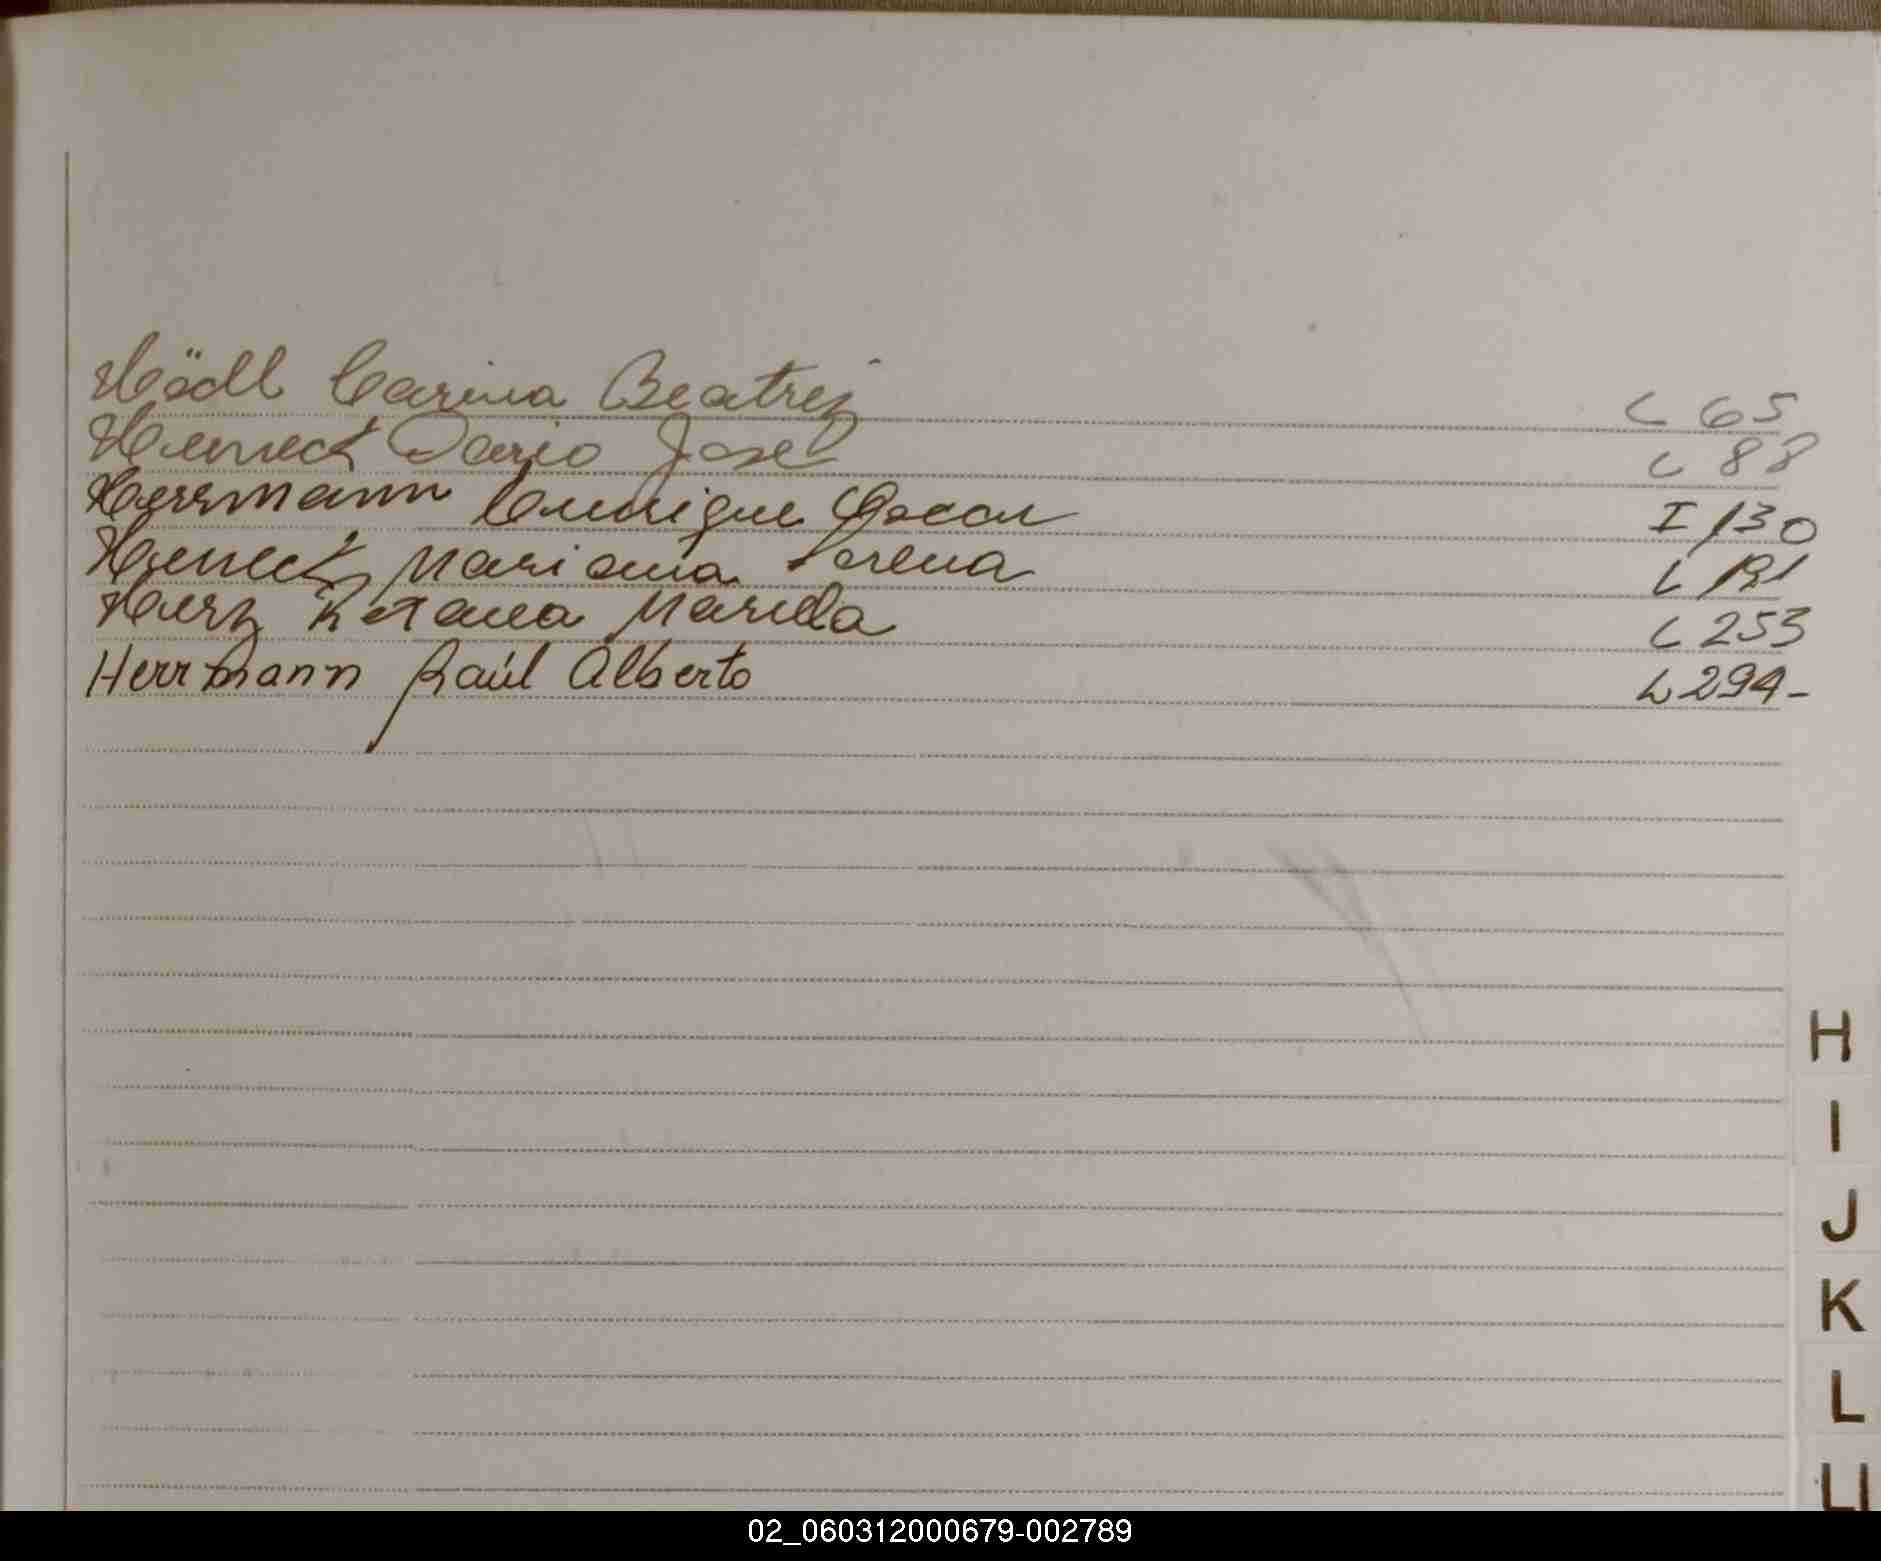 Hödl Carina Beatriz L 65
Heineck Dario José L 88
Herrmann Enrique Oscar I 130
Heineck Mariana Lorena L 191
Herz Mariela L 253
Herrmann Raúl Alberto L 294-
H
I
J
K
L
LL
02_060312000679-002789